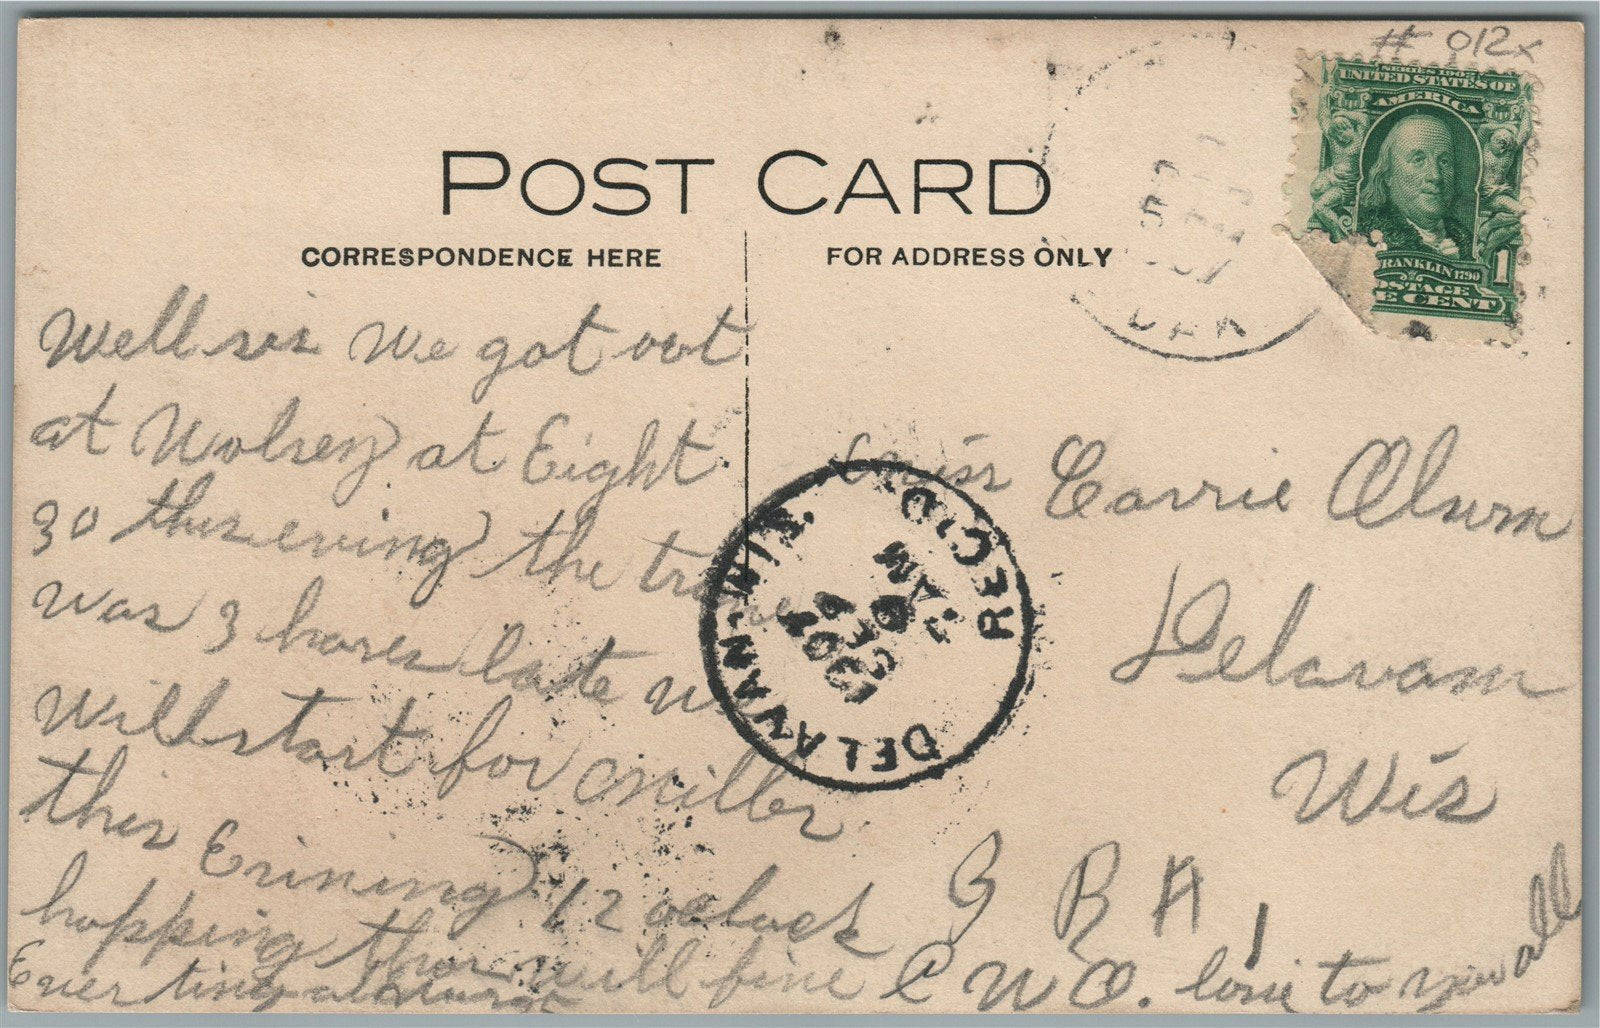 # 012x
SERIES 1902
UNITED STATES OF
AMERICA
FRANKLIN 1790
POSTAGE
E CENT
1
POST CARD
CORRESPONDENCE HERE
FOR ADDRESS ONLY
DAK
Well sis We got out
at Wolsey at Eight
30 this evning the trane
was 3 hores late we
will start for Miller
this Evining 12 oclock
hopping this will fine
Ever ting
C W O. love to you all
DELAVAN-WIS.
REC'D.
7 AM
DEC
1907
Miss Carrie Olsen
Delavan
Wis
G R H,